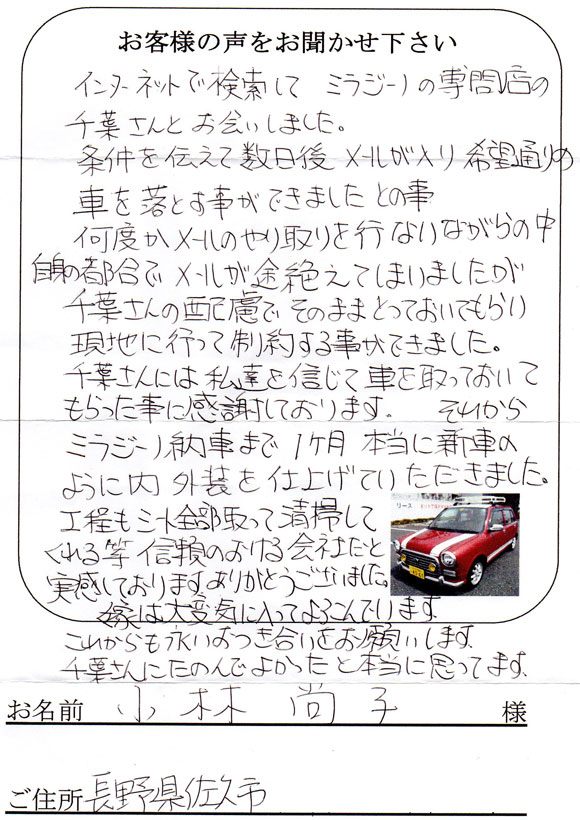 お客様の声をお聞かせ下さい
インターネットで検索して ミラジーノの専門店の
千葉さんとお会いしました。
条件を伝えて数日後 メールが入り 希望通りの
車を落とす事ができましたとの事
何度かメールのやり取りを行ないながらの中
自身の都合でメールが途絶えてしまいましたが
千葉さんの配慮で そのままとっておいてもらい
現地に行って制約する事ができました。
千葉さんには私達を信じて車を取っておいて
もらった事に感謝しております。 それから
ミラジーノ納車まで1ヶ月 本当に新車の
ように内 外装を仕上げていただきました。
工程もシート全部取って清掃して
くれる等 信頼のおける会社だと
実感しております。ありがとうございました。
嫁は大変気に入ってよろこんでいます。
これからも永いおつき合いをお願いします。
千葉さんにたのんでよかったと本当に思ってます。
お名前 小林 尚子 様
ご住所 長野県佐久市
リース